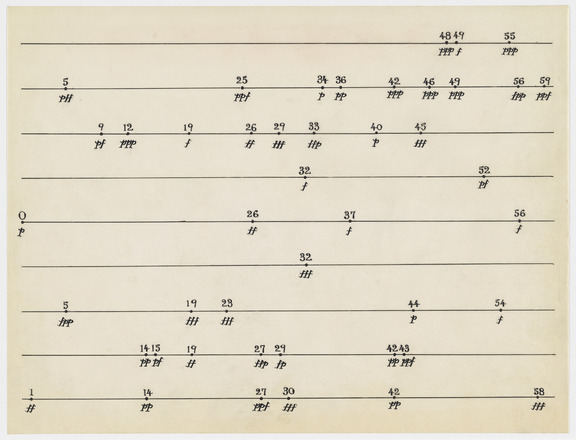 48 49 55
ppp f ppp
5 25 34 36 42 46 49 56 59
pff ppf p pp ppp ppp ppp fpp ppf
9 12 19 26 29 33 40 45
pf ppp f ff fff ffp p fff
32 52
f pf
0 26 37 56
p ff f f
32
fff
5 19 23 44 54
fpp fff fff p f
14 15 19 27 29 42 43
pp pf ff ffp fp pp ppf
1 14 27 30 42 58
ff pp ppf fff pp fff